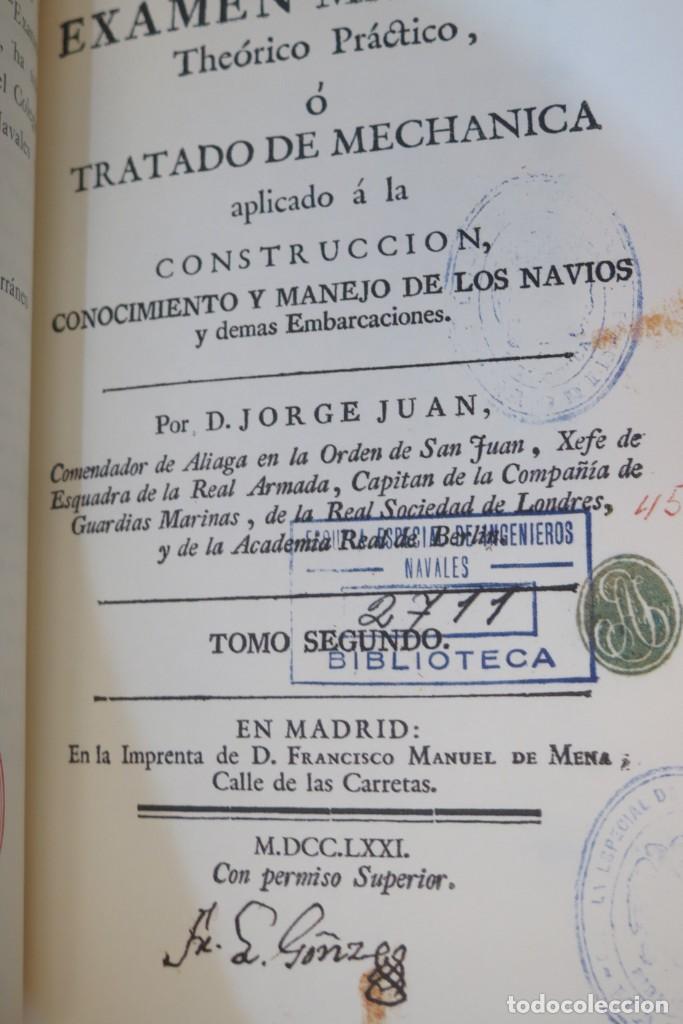 EXAMEN
Theórico Práctico,
ó
TRATADO DE MECHANICA
aplicado á la
CONSTRUCCION,
CONOCIMIENTO Y MANEJO DE LOS NAVIOS
y demas Embarcaciones.
Por D. JORGE JUAN,
Comendador de Aliaga en la Orden de San Juan, Xefe de
Esquadra de la Real Armada, Capitan de la Compañía de
Guardias Marinas, de la Real Sociedad de Londres,
y de la Academia Real de Berlin.
45
ESCUELA ESPECIAL DE INGENIEROS
NAVALES
2711
BIBLIOTECA
TOMO SEGUNDO.
EN MADRID:
En la Imprenta de D. FRANCISCO MANUEL DE MENA,
Calle de las Carretas.
M.DCC.LXXI.
Con permiso Superior.
ESPECIAL D
todocoleccion